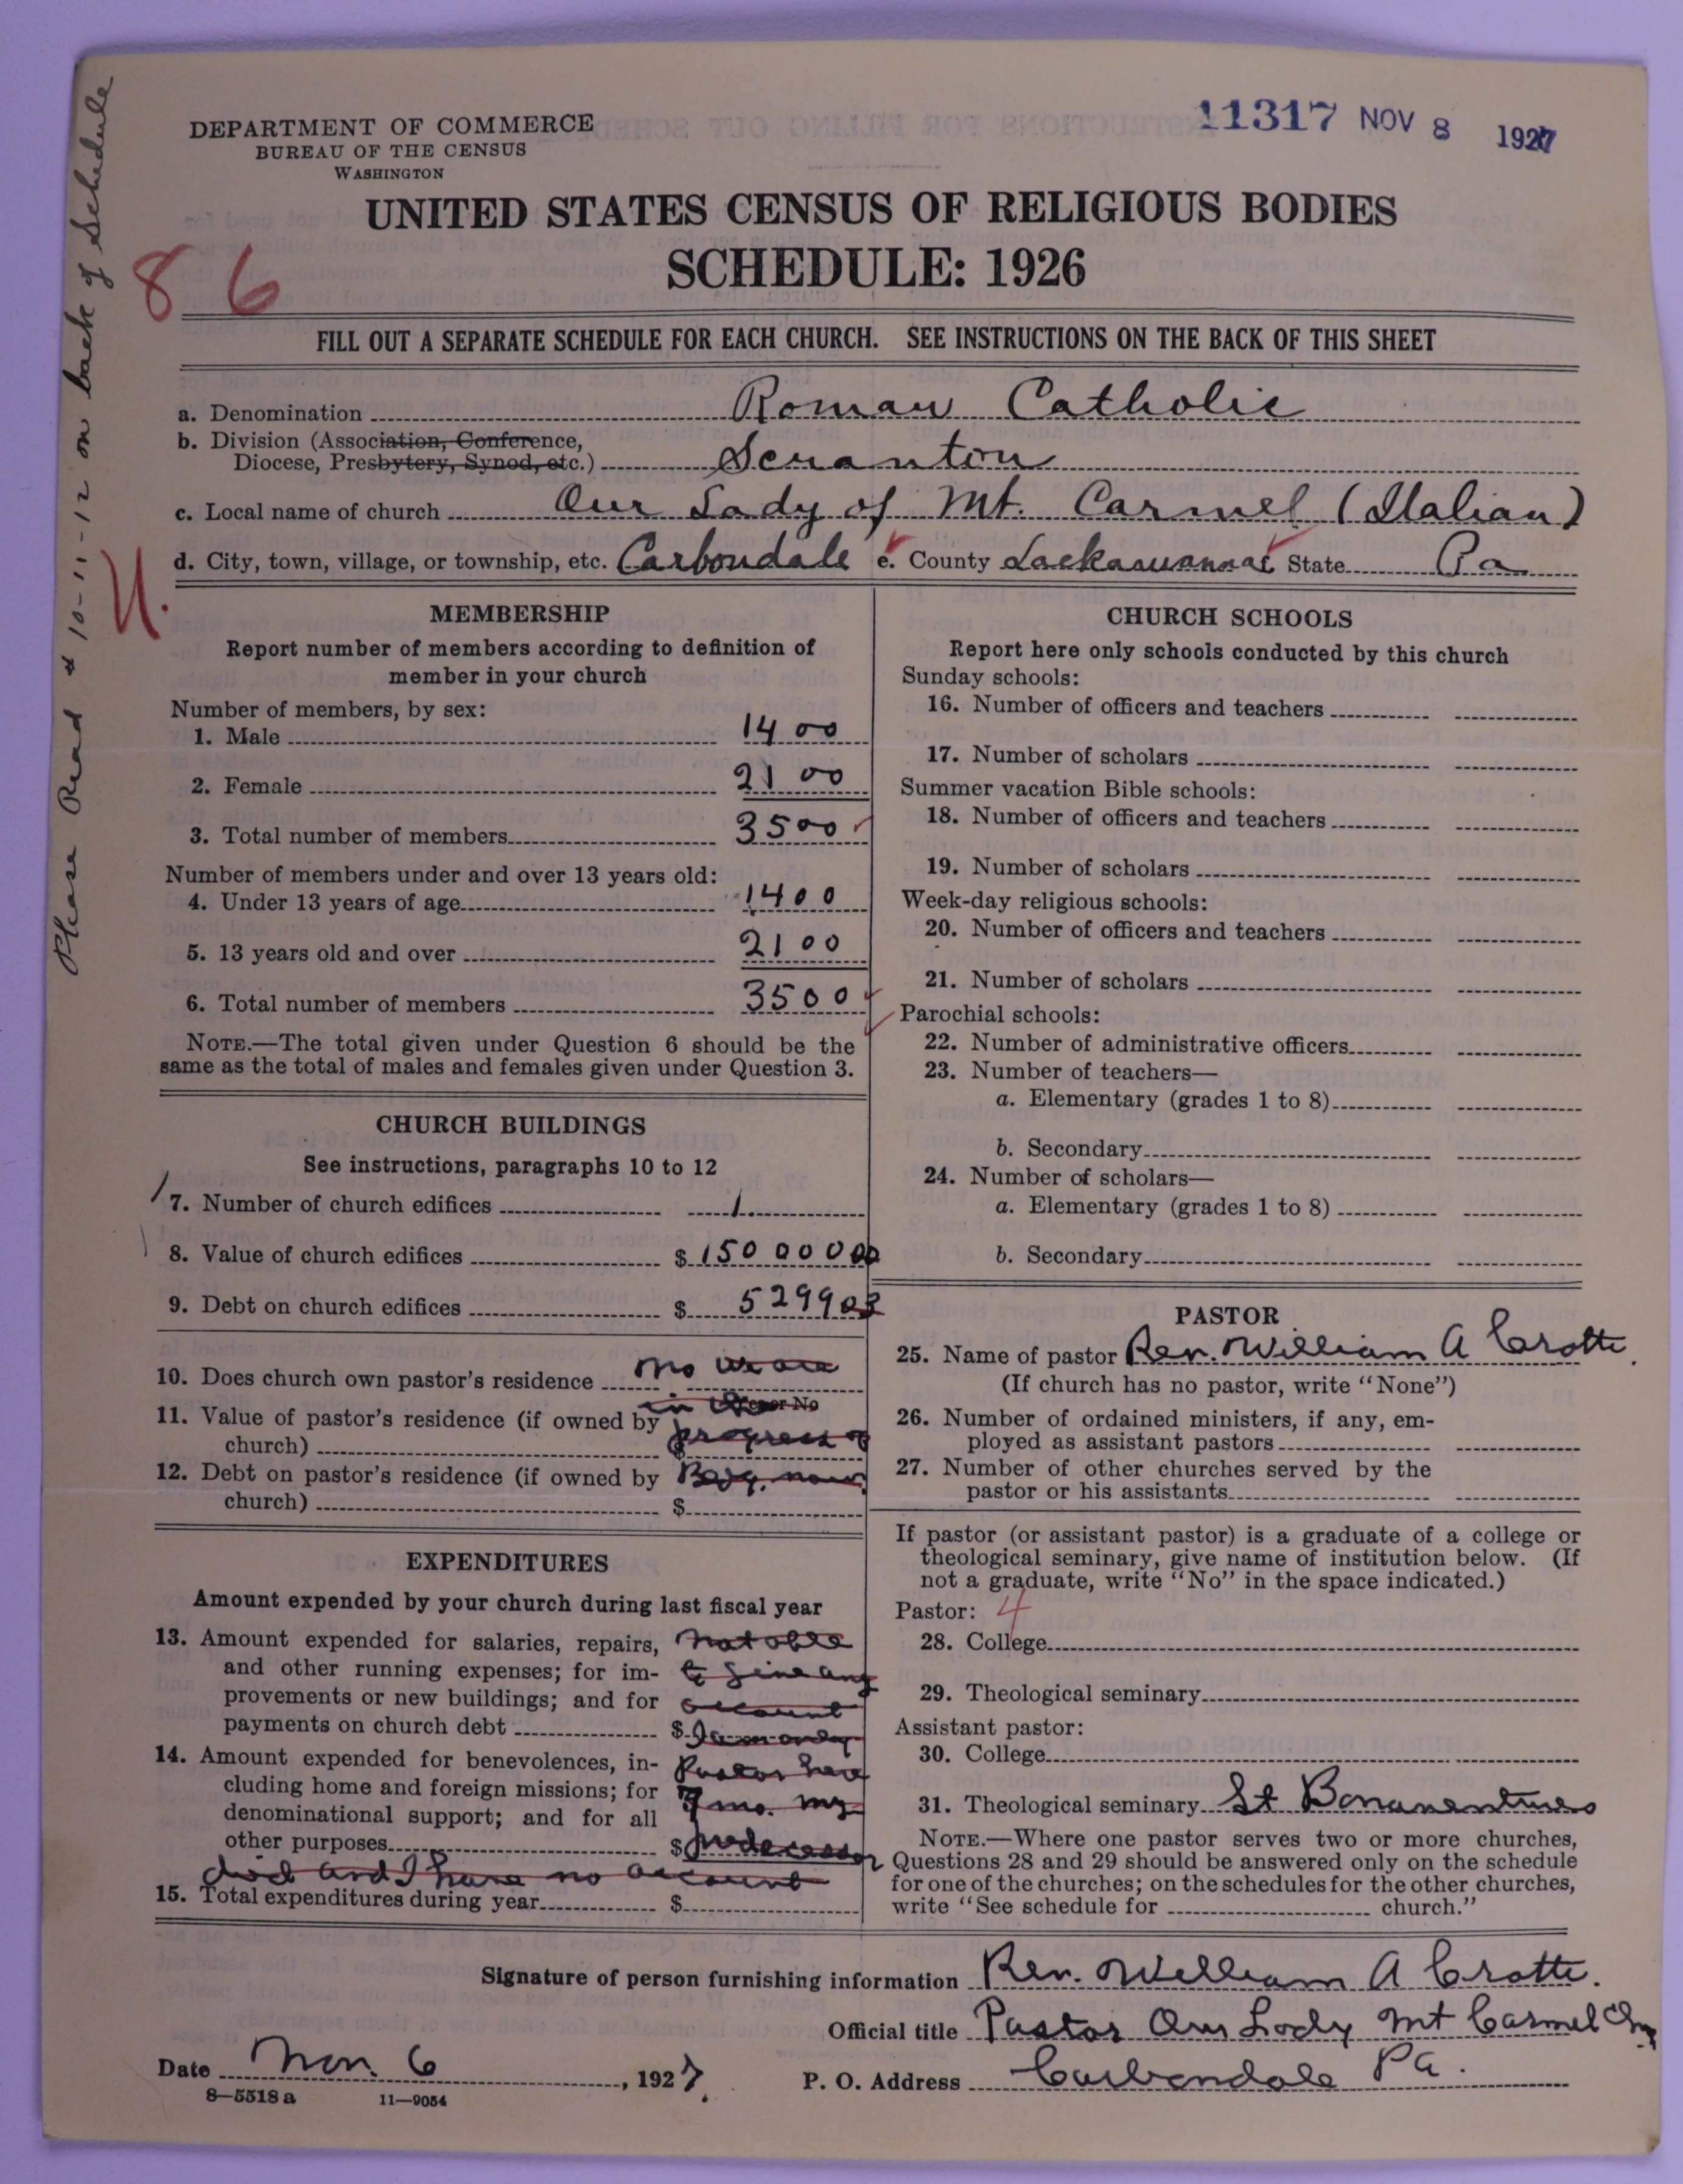 11317 NOV 8 1927
DEPARTMENT OF COMMERCE
BUREAU OF THE CENSUS
WASHINGTON
UNITED STATES CENSUS OF RELIGIOUS BODIES
SCHEDULE: 1926
86
Please Read # 10-11-12 on back of Schedule
U.
FILL OUT A SEPARATE SCHEDULE FOR EACH CHURCH. SEE INSTRUCTIONS ON THE BACK OF THIS SHEET
a. Denomination Roman Catholic
b. Division (Association, Conference,
Diocese, Presbytery, Synod, etc.) Scranton
c. Local name of church Our Lady of Mt. Carmel (Italian)
d. City, town, village, or township, etc. Carbondale e. County Lackawanna State Pa
MEMBERSHIP
Report number of members according to definition of
member in your church
Number of members, by sex:
1. Male 1400
2. Female 2100
3. Total number of members 3500
Number of members under and over 13 years old:
4. Under 13 years of age 1400
5. 13 years old and over 2100
6. Total number of members 3500
NOTE.—The total given under Question 6 should be the
same as the total of males and females given under Question 3.
CHURCH BUILDINGS
See instructions, paragraphs 10 to 12
7. Number of church edifices 1
8. Value of church edifices $ 150 000 00
9. Debt on church edifices $ 529903
10. Does church own pastor's residence no we are
in the Yes or No
11. Value of pastor's residence (if owned by progress of
church) $
12. Debt on pastor's residence (if owned by Bldg. now
church) $
EXPENDITURES
Amount expended by your church during last fiscal year
13. Amount expended for salaries, repairs, not able
and other running expenses; for im- to give any
provements or new buildings; and for account
payments on church debt $ I am only
14. Amount expended for benevolences, in- Pastor here
cluding home and foreign missions; for 7 mo. my
denominational support; and for all
other purposes $ predecessor
died and I have no account
15. Total expenditures during year $
CHURCH SCHOOLS
Report here only schools conducted by this church
Sunday schools:
16. Number of officers and teachers
17. Number of scholars
Summer vacation Bible schools:
18. Number of officers and teachers
19. Number of scholars
Week-day religious schools:
20. Number of officers and teachers
21. Number of scholars
Parochial schools:
22. Number of administrative officers
23. Number of teachers—
a. Elementary (grades 1 to 8)
b. Secondary
24. Number of scholars—
a. Elementary (grades 1 to 8)
b. Secondary
PASTOR
25. Name of pastor Rev. William A Crotti.
(If church has no pastor, write "None")
26. Number of ordained ministers, if any, em-
ployed as assistant pastors
27. Number of other churches served by the
pastor or his assistants
If pastor (or assistant pastor) is a graduate of a college or
theological seminary, give name of institution below. (If
not a graduate, write "No" in the space indicated.)
Pastor: 4
28. College
29. Theological seminary
Assistant pastor:
30. College
31. Theological seminary St Bonaventures
NOTE.—Where one pastor serves two or more churches,
Questions 28 and 29 should be answered only on the schedule
for one of the churches; on the schedules for the other churches,
write "See schedule for church."
Signature of person furnishing information Rev. William A Crotti.
Official title Pastor Our Lady Mt Carmel Ch,
Date Nov. 6, 1927. P. O. Address Carbondale Pa.
8—5518 a 11—9054